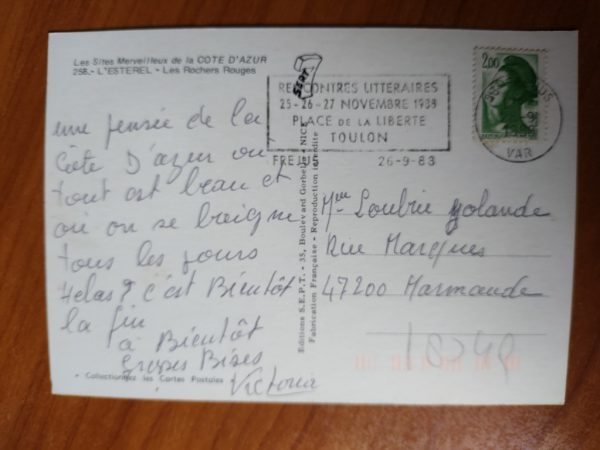 Les Sites Merveilleux de la COTE D'AZUR
258.- L'ESTEREL - Les Rochers Rouges
une pensée de la
Côte D'azur ou
tout est beau et
où on se baigne
tous les jours
Helas ? c'est Bientôt
la fin
à Bientôt
Grosses Bises
Victoria
• Collectionnez les Cartes Postales
Editions S.E.P.T. - 35, Boulevard Gorbella - NICE
Fabrication Française - Reproduction interdite
SEPT
RENCONTRES LITTERAIRES
25-26-27 NOVEMBRE 1988
PLACE de la LIBERTE
TOULON
FREJUS
26-9-88
2,00
VAR
Mme Loubrie Yolande
Rue Marques
47200 Marmande